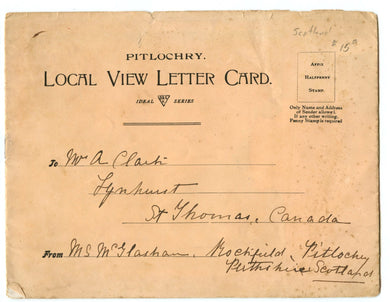 Scotland
$15.⁰
PITLOCHRY.
LOCAL VIEW LETTER CARD.
IDEAL SERIES
AFFIX
HALFPENNY
STAMP.
Only Name and Address
of Sender allowed.
If any other writing,
Penny Stamp is required
To Mr A Clark
Lynhurst
St Thomas, Canada
From M.S. McGlashan, Rochfield, Pitlochry
Perthshire Scotland